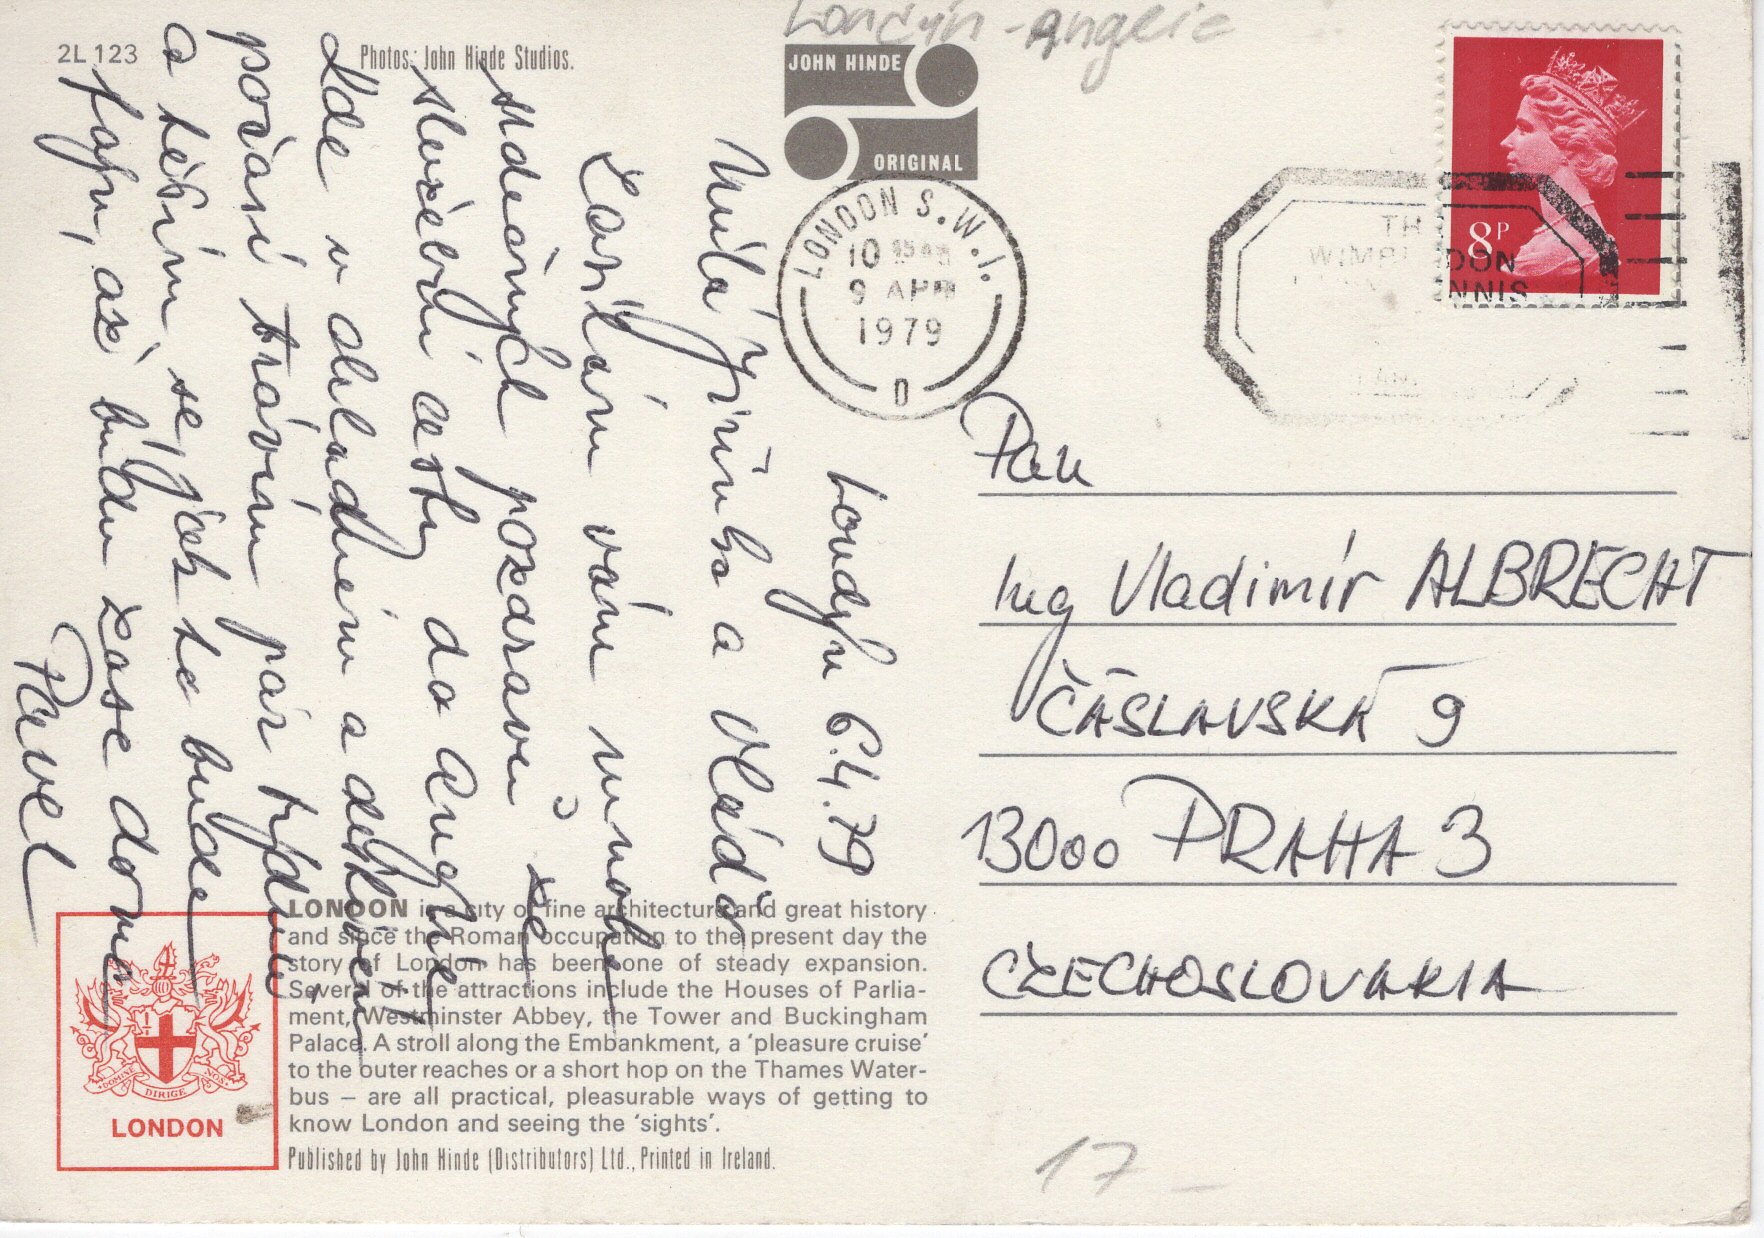 Londýn - Anglie
2L 123
Photos: John Hinde Studios.
JOHN HINDE
ORIGINAL
LONDON S.W.1.
10 45 AM
9 APR
1979
D
TH
WIMBL DON
NNIS
8P
Londýn 6.4.79
Milá Jiřinko a Vláďo
Zasílám vám mnoho
srdečných pozdravů ze
služební cesty do Anglie.
Jde v chladném a deštivém
počasí trávím pár týdnů
a těším se, jak to bude
fajn, až budu zase doma
Pavel
Pan
Ing Vladimír ALBRECHT
ČÁSLAVSKÁ 9
13000 PRAHA 3
CZECHOSLOVAKIA
LONDON is a city of fine architecture and great history
and since the Roman occupation to the present day the
story of London has been one of steady expansion.
Several of the attractions include the Houses of Parlia-
ment, Westminster Abbey, the Tower and Buckingham
Palace. A stroll along the Embankment, a 'pleasure cruise'
to the outer reaches or a short hop on the Thames Water-
bus – are all practical, pleasurable ways of getting to
know London and seeing the 'sights'.
Published by John Hinde (Distributors) Ltd., Printed in Ireland.
DOMINE DIRIGE NOS
LONDON
17 –